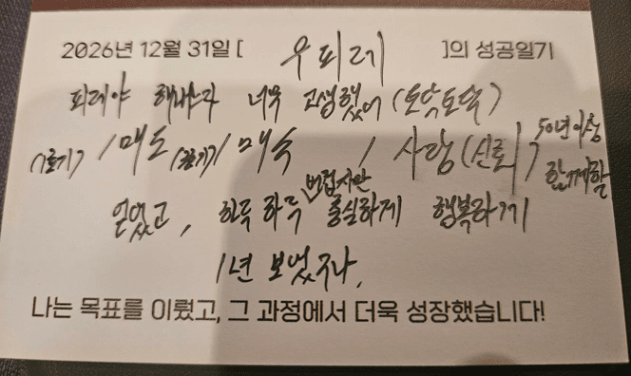 2026년 12월 31일 [ 우피레 ]의 성공일기
피레야 해나느라 너무 고생했어 (토닥토닥)
(1분기) / 매도 (3분기) / 매수 / 사람(신뢰), 50년이상 함께할
얻었고, 하루하루 버겁지만 충실하게 행복하게
1년 보냈구나,
나는 목표를 이뤘고, 그 과정에서 더욱 성장했습니다!